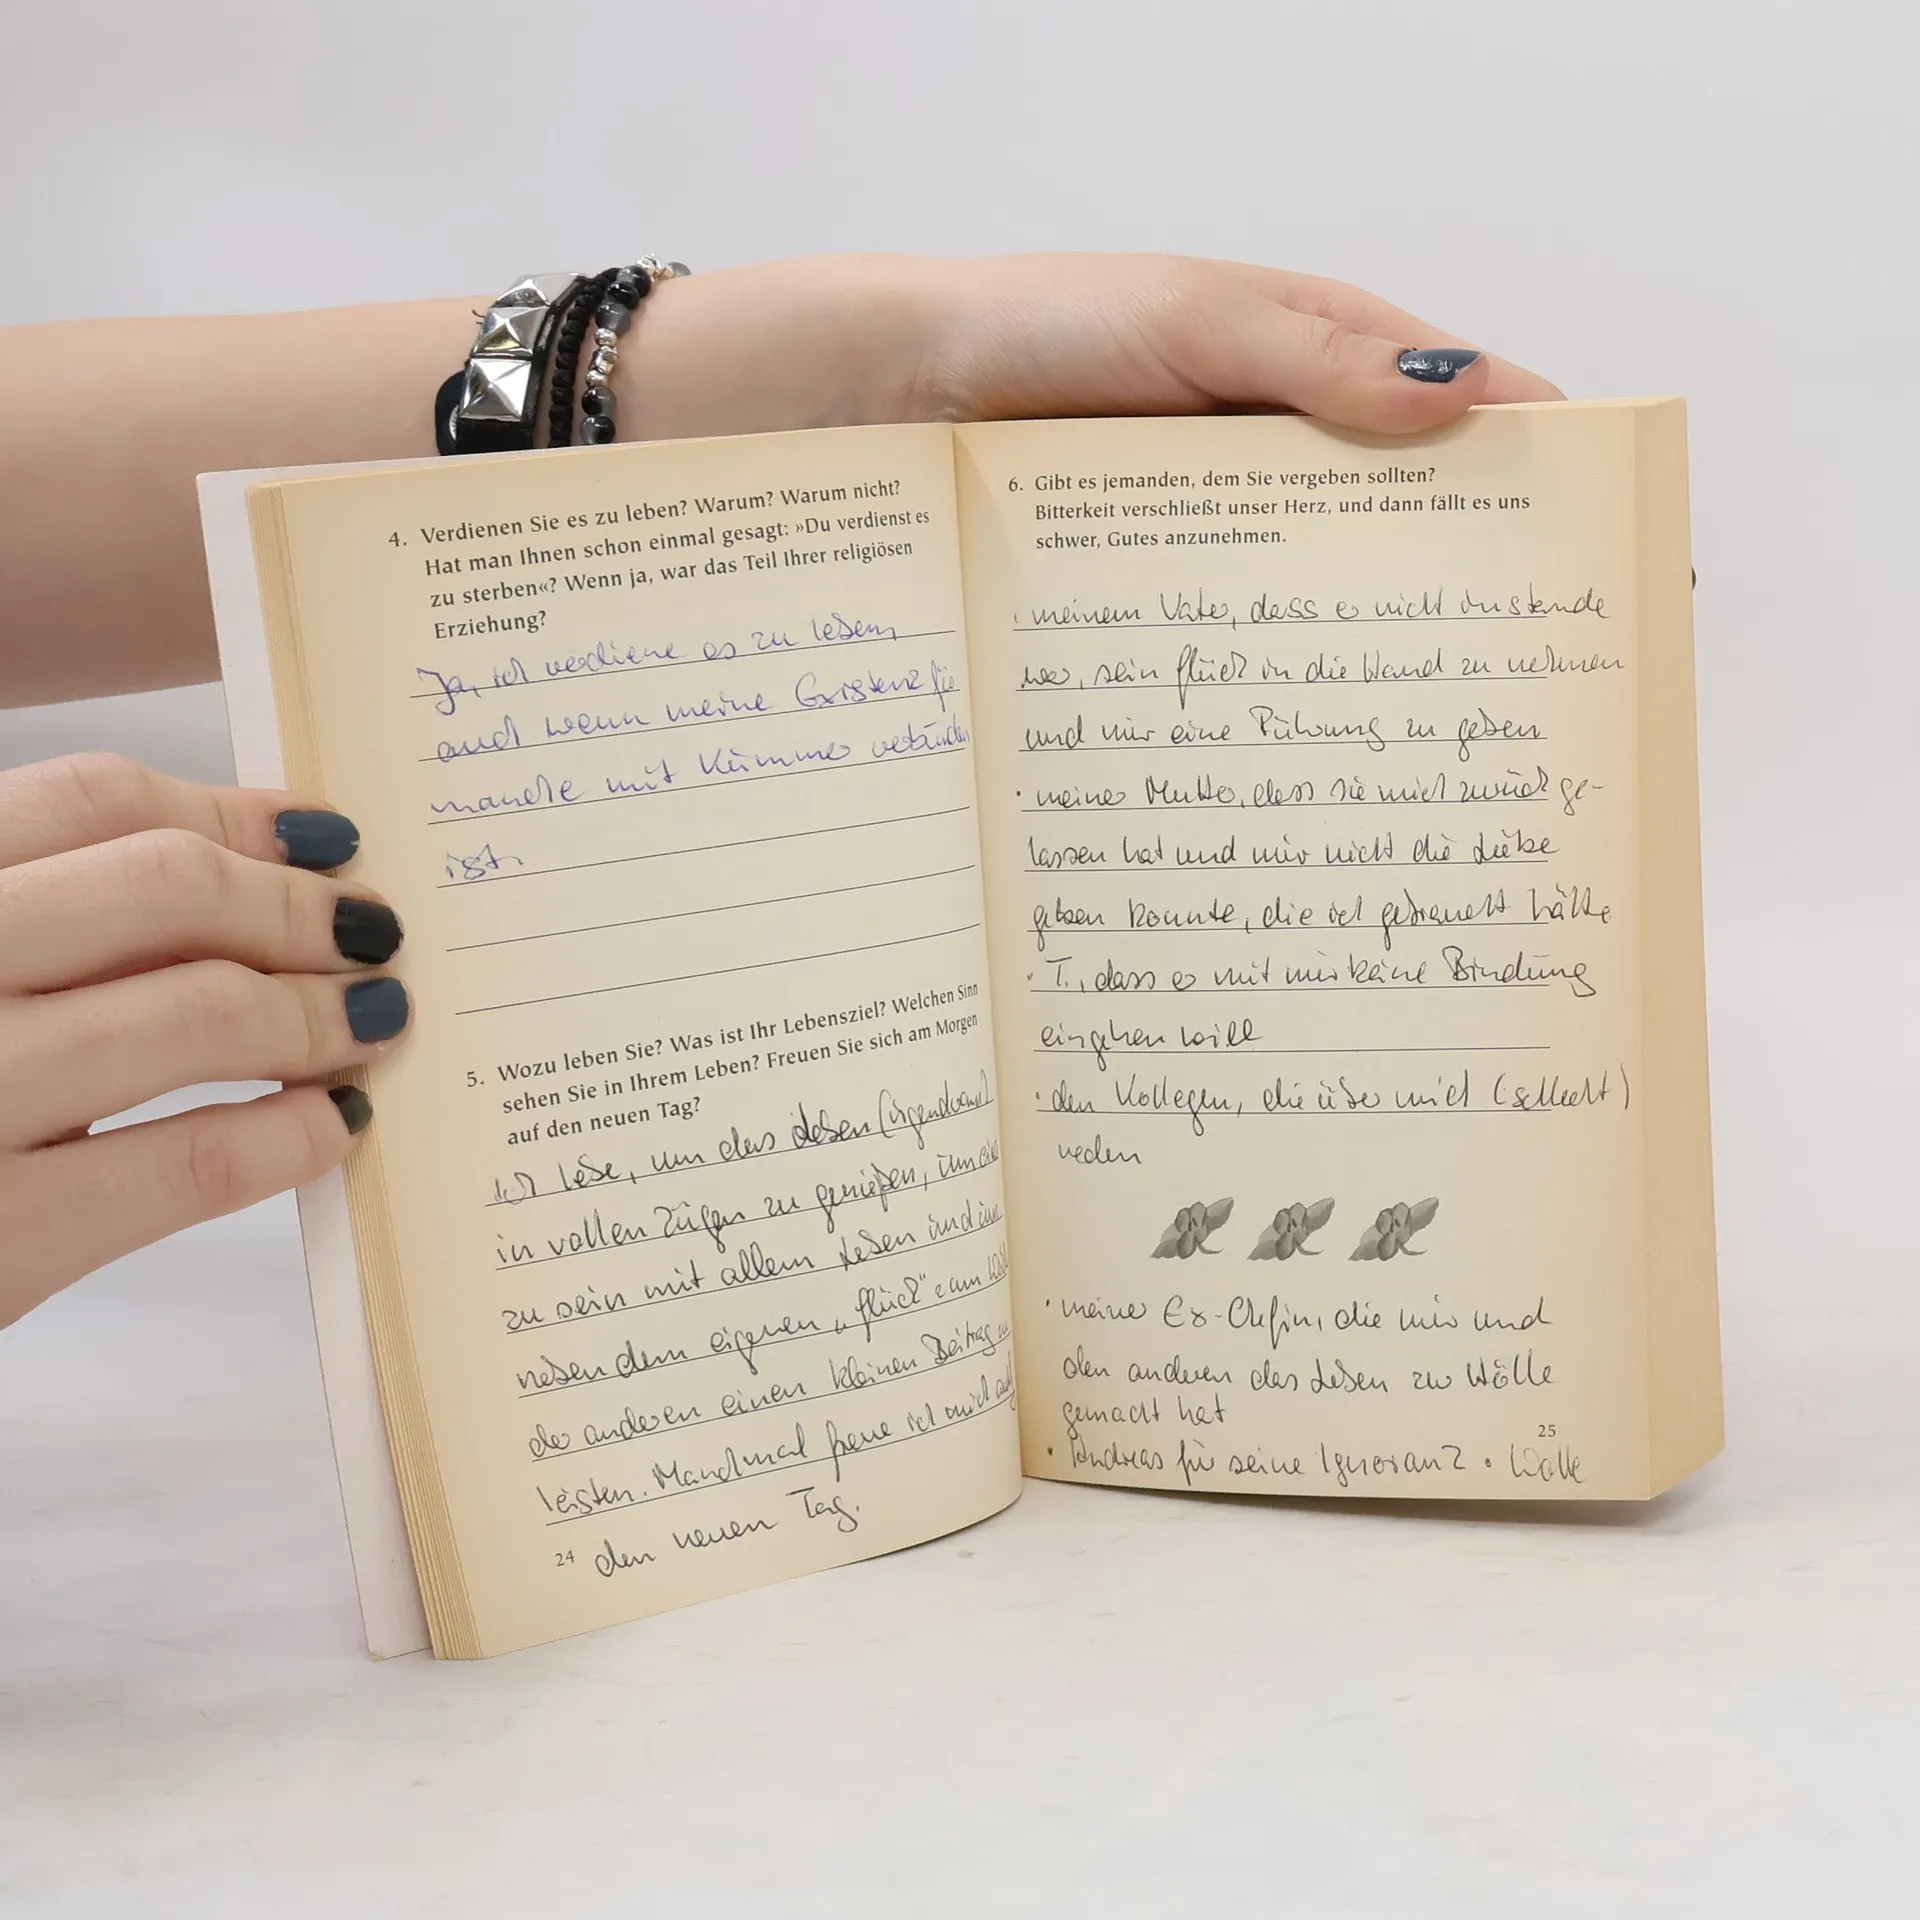 4. Verdienen Sie es zu leben? Warum? Warum nicht?
Hat man Ihnen schon einmal gesagt: »Du verdienst es
zu sterben«? Wenn ja, war das Teil Ihrer religiösen
Erziehung?
Ja, ich verdiene es zu leben,
auch wenn meine Existenz für
manche mit Kummer verbunden
ist.
5. Wozu leben Sie? Was ist Ihr Lebensziel? Welchen Sinn
sehen Sie in Ihrem Leben? Freuen Sie sich am Morgen
auf den neuen Tag?
Ich lebe, um das Leben (irgendwann)
in vollen Zügen zu genießen, um eins
zu sein mit allem Leben und um
neben dem eigenen „Glück" am Wohl
der anderen einen kleinen Beitrag zu
leisten. Manchmal freue ich mich auf
den neuen Tag.
24
6. Gibt es jemanden, dem Sie vergeben sollten?
Bitterkeit verschließt unser Herz, und dann fällt es uns
schwer, Gutes anzunehmen.
• meinem Vater, dass er nicht imstande
war, sein Glück in die Hand zu nehmen
und mir eine Führung zu geben
• meiner Mutter, dass sie mich zurück ge-
lassen hat und mir nicht die Liebe
geben konnte, die ich gebraucht hätte
• T., dass er mit mir keine Bindung
eingehen will
• den Kollegen, die über mich (schlecht)
reden
• meiner Ex-Chefin, die mir und
den anderen das Leben zur Hölle
gemacht hat
25
• Andreas für seine Ignoranz •